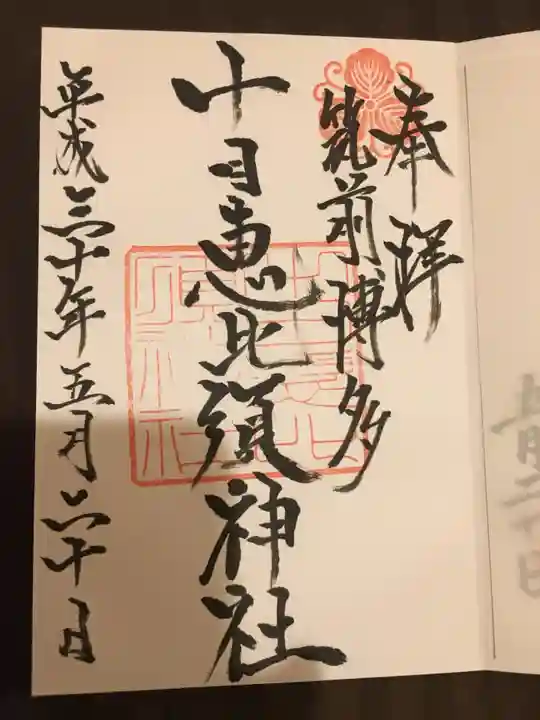 奉拝
筑前博多
十日恵比須神社
平成三十年五月二十日